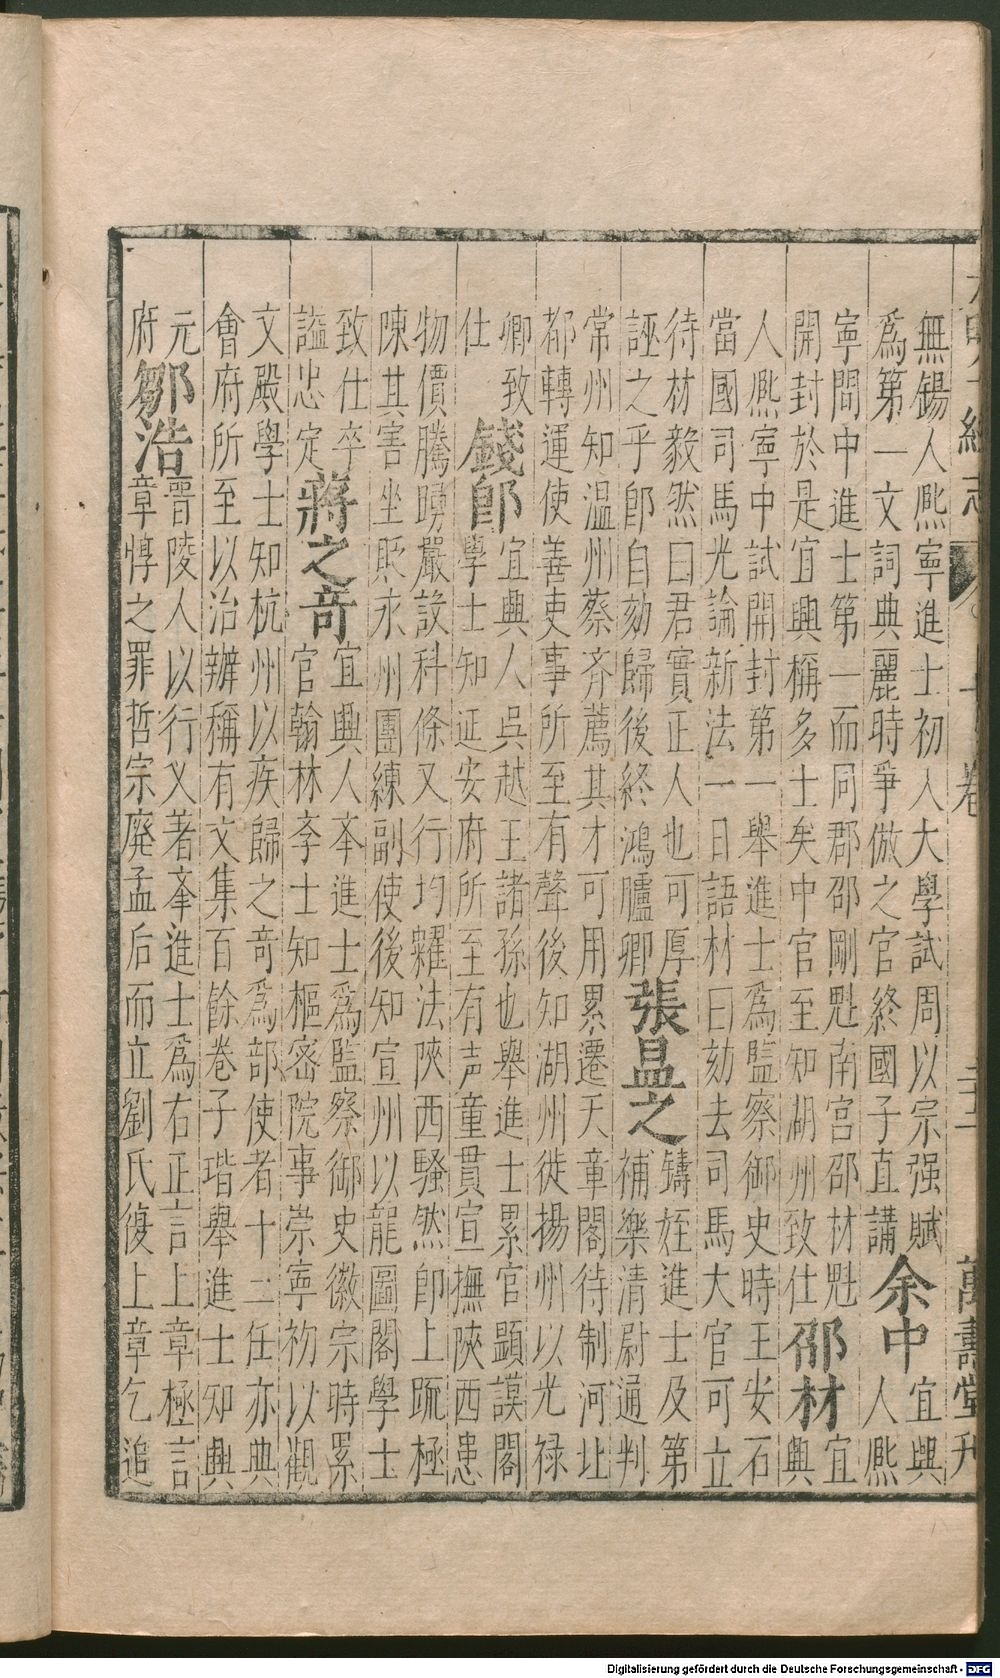 萬壽堂刊
無錫人熈寧進士初入大學試周以宗强賦
為第一文詞典麗時爭倣之官終國子直講
余中
宜興
人熈
寧間中進士第一而同郡邵剛魁南宮邵材魁
開封於是宜興稱多士矣中官至知湖州致仕
邵材
宜
興
人熈寧中試開封第一舉進士為監察御史時王安石
當國司馬光論新法一日語材曰劾去司馬大官可立
待材毅然曰君實正人也可厚
誣之乎卽自劾歸後終鴻臚卿
張昷之
鑄姪進士及第
補樂清尉通判
常州知温州蔡齊薦其才可用累遷天章閣待制河北
都轉運使善吏事所至有聲後知湖州徙揚州以光禄
卿致
仕
錢卽
宜興人吳越王諸孫也舉進士累官顯謨閣
學士知延安府所至有声童貫宣撫陝西患
物價騰踴嚴設科條又行均糴法陝西騷然卽上䟽極
陳其害坐貶永州團練副使後知宣州以龍圖閣學士
致仕卒
謚忠定
蔣之奇
宜興人举進士為監察御史徽宗時累
官翰林斈士知樞密院事崇寧初以觀
文殿學士知杭州以疾歸之奇為部使者十二任亦典
會府所至以治辦稱有文集百餘卷子瑎舉進士知興
元
府
鄒浩
晋陵人以行义著举進士為右正言上章極言
章惇之罪哲宗廢孟后而立劉氏復上章乞追
Digitalisierung gefördert durch die Deutsche Forschungsgemeinschaft - DFG